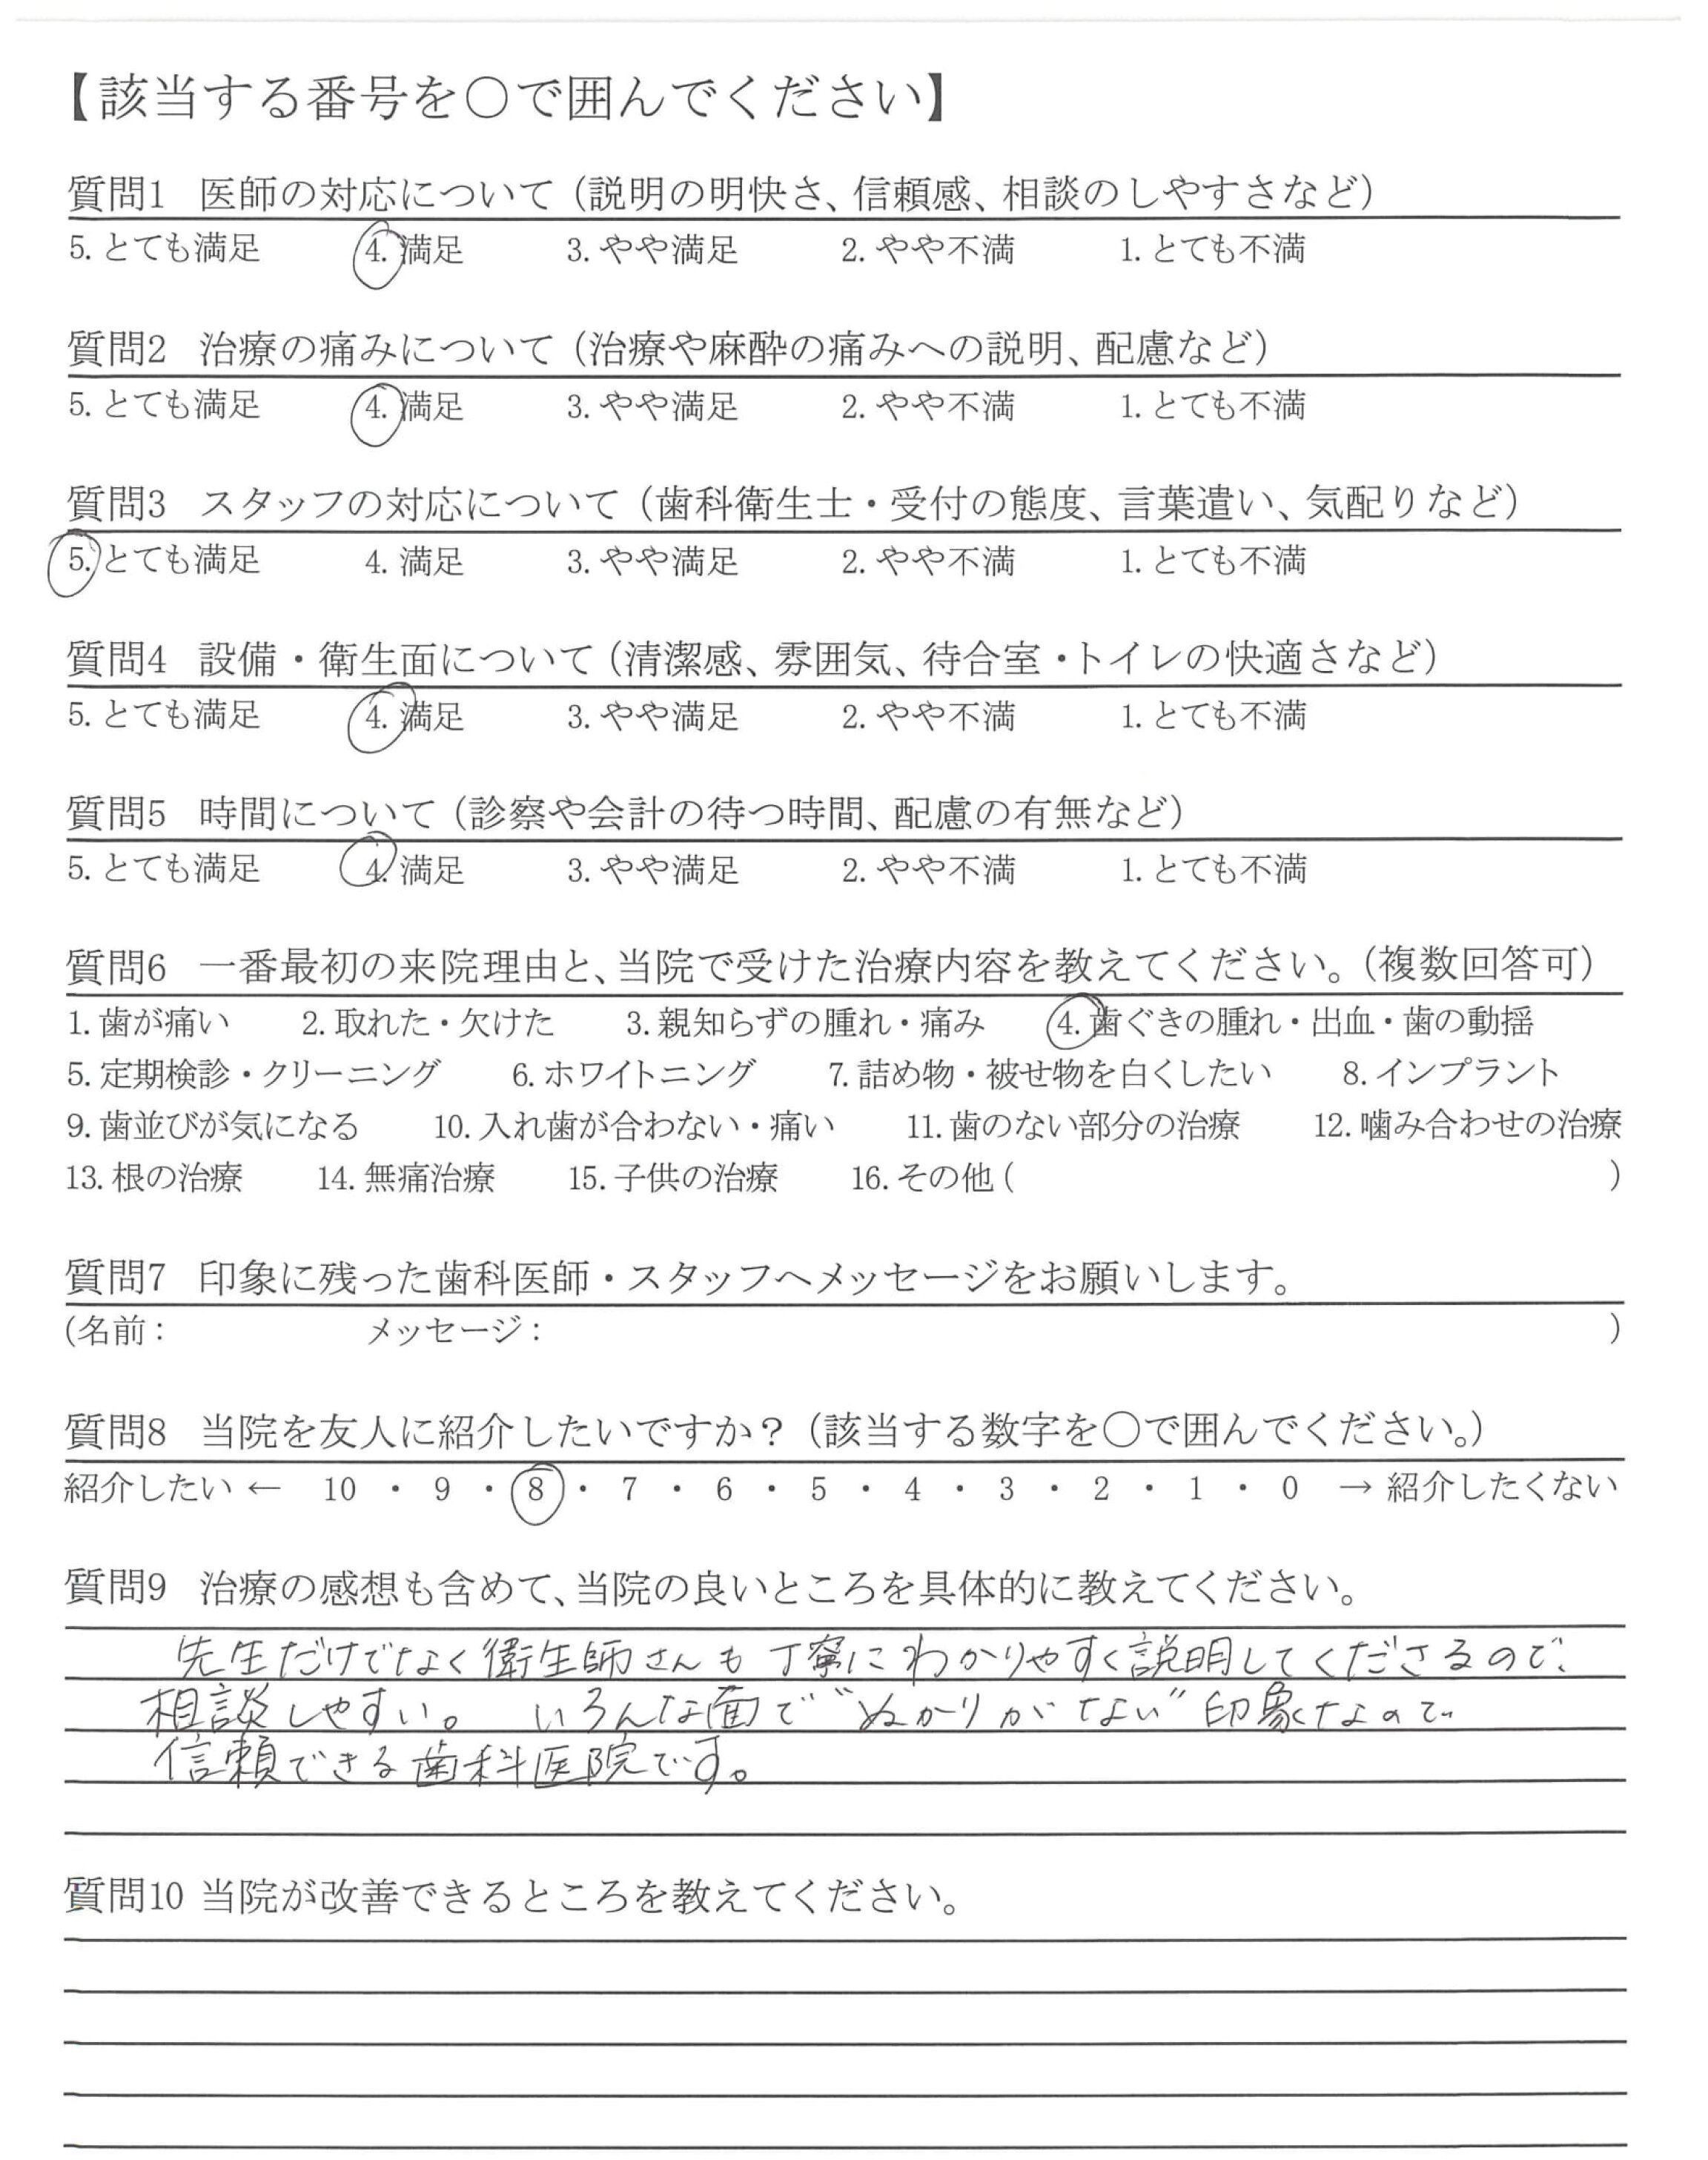 【該当する番号を○で囲んでください】
質問1 医師の対応について（説明の明快さ、信頼感、相談のしやすさなど）
5. とても満足 4. 満足 3. やや満足 2. やや不満 1. とても不満
質問2 治療の痛みについて（治療や麻酔の痛みへの説明、配慮など）
5. とても満足 4. 満足 3. やや満足 2. やや不満 1. とても不満
質問3 スタッフの対応について（歯科衛生士・受付の態度、言葉遣い、気配りなど）
5. とても満足 4. 満足 3. やや満足 2. やや不満 1. とても不満
質問4 設備・衛生面について（清潔感、雰囲気、待合室・トイレの快適さなど）
5. とても満足 4. 満足 3. やや満足 2. やや不満 1. とても不満
質問5 時間について（診察や会計の待つ時間、配慮の有無など）
5. とても満足 4. 満足 3. やや満足 2. やや不満 1. とても不満
質問6 一番最初の来院理由と、当院で受けた治療内容を教えてください。（複数回答可）
1. 歯が痛い 2. 取れた・欠けた 3. 親知らずの腫れ・痛み 4. 歯ぐきの腫れ・出血・歯の動揺
5. 定期検診・クリーニング 6. ホワイトニング 7. 詰め物・被せ物を白くしたい 8. インプラント
9. 歯並びが気になる 10. 入れ歯が合わない・痛い 11. 歯のない部分の治療 12. 噛み合わせの治療
13. 根の治療 14. 無痛治療 15. 子供の治療 16. その他 ( )
質問7 印象に残った歯科医師・スタッフへメッセージをお願いします。
(名前： メッセージ： )
質問8 当院を友人に紹介したいですか？（該当する数字を○で囲んでください。）
紹介したい ← 10 ・ 9 ・ 8 ・ 7 ・ 6 ・ 5 ・ 4 ・ 3 ・ 2 ・ 1 ・ 0 → 紹介したくない
質問9 治療の感想も含めて、当院の良いところを具体的に教えてください。
先生だけでなく衛生師さんも丁寧にわかりやすく説明してくださるので、
相談しやすい。 いろんな面で“ぬかりがない”印象なので
信頼できる歯科医院です。
質問10 当院が改善できるところを教えてください。